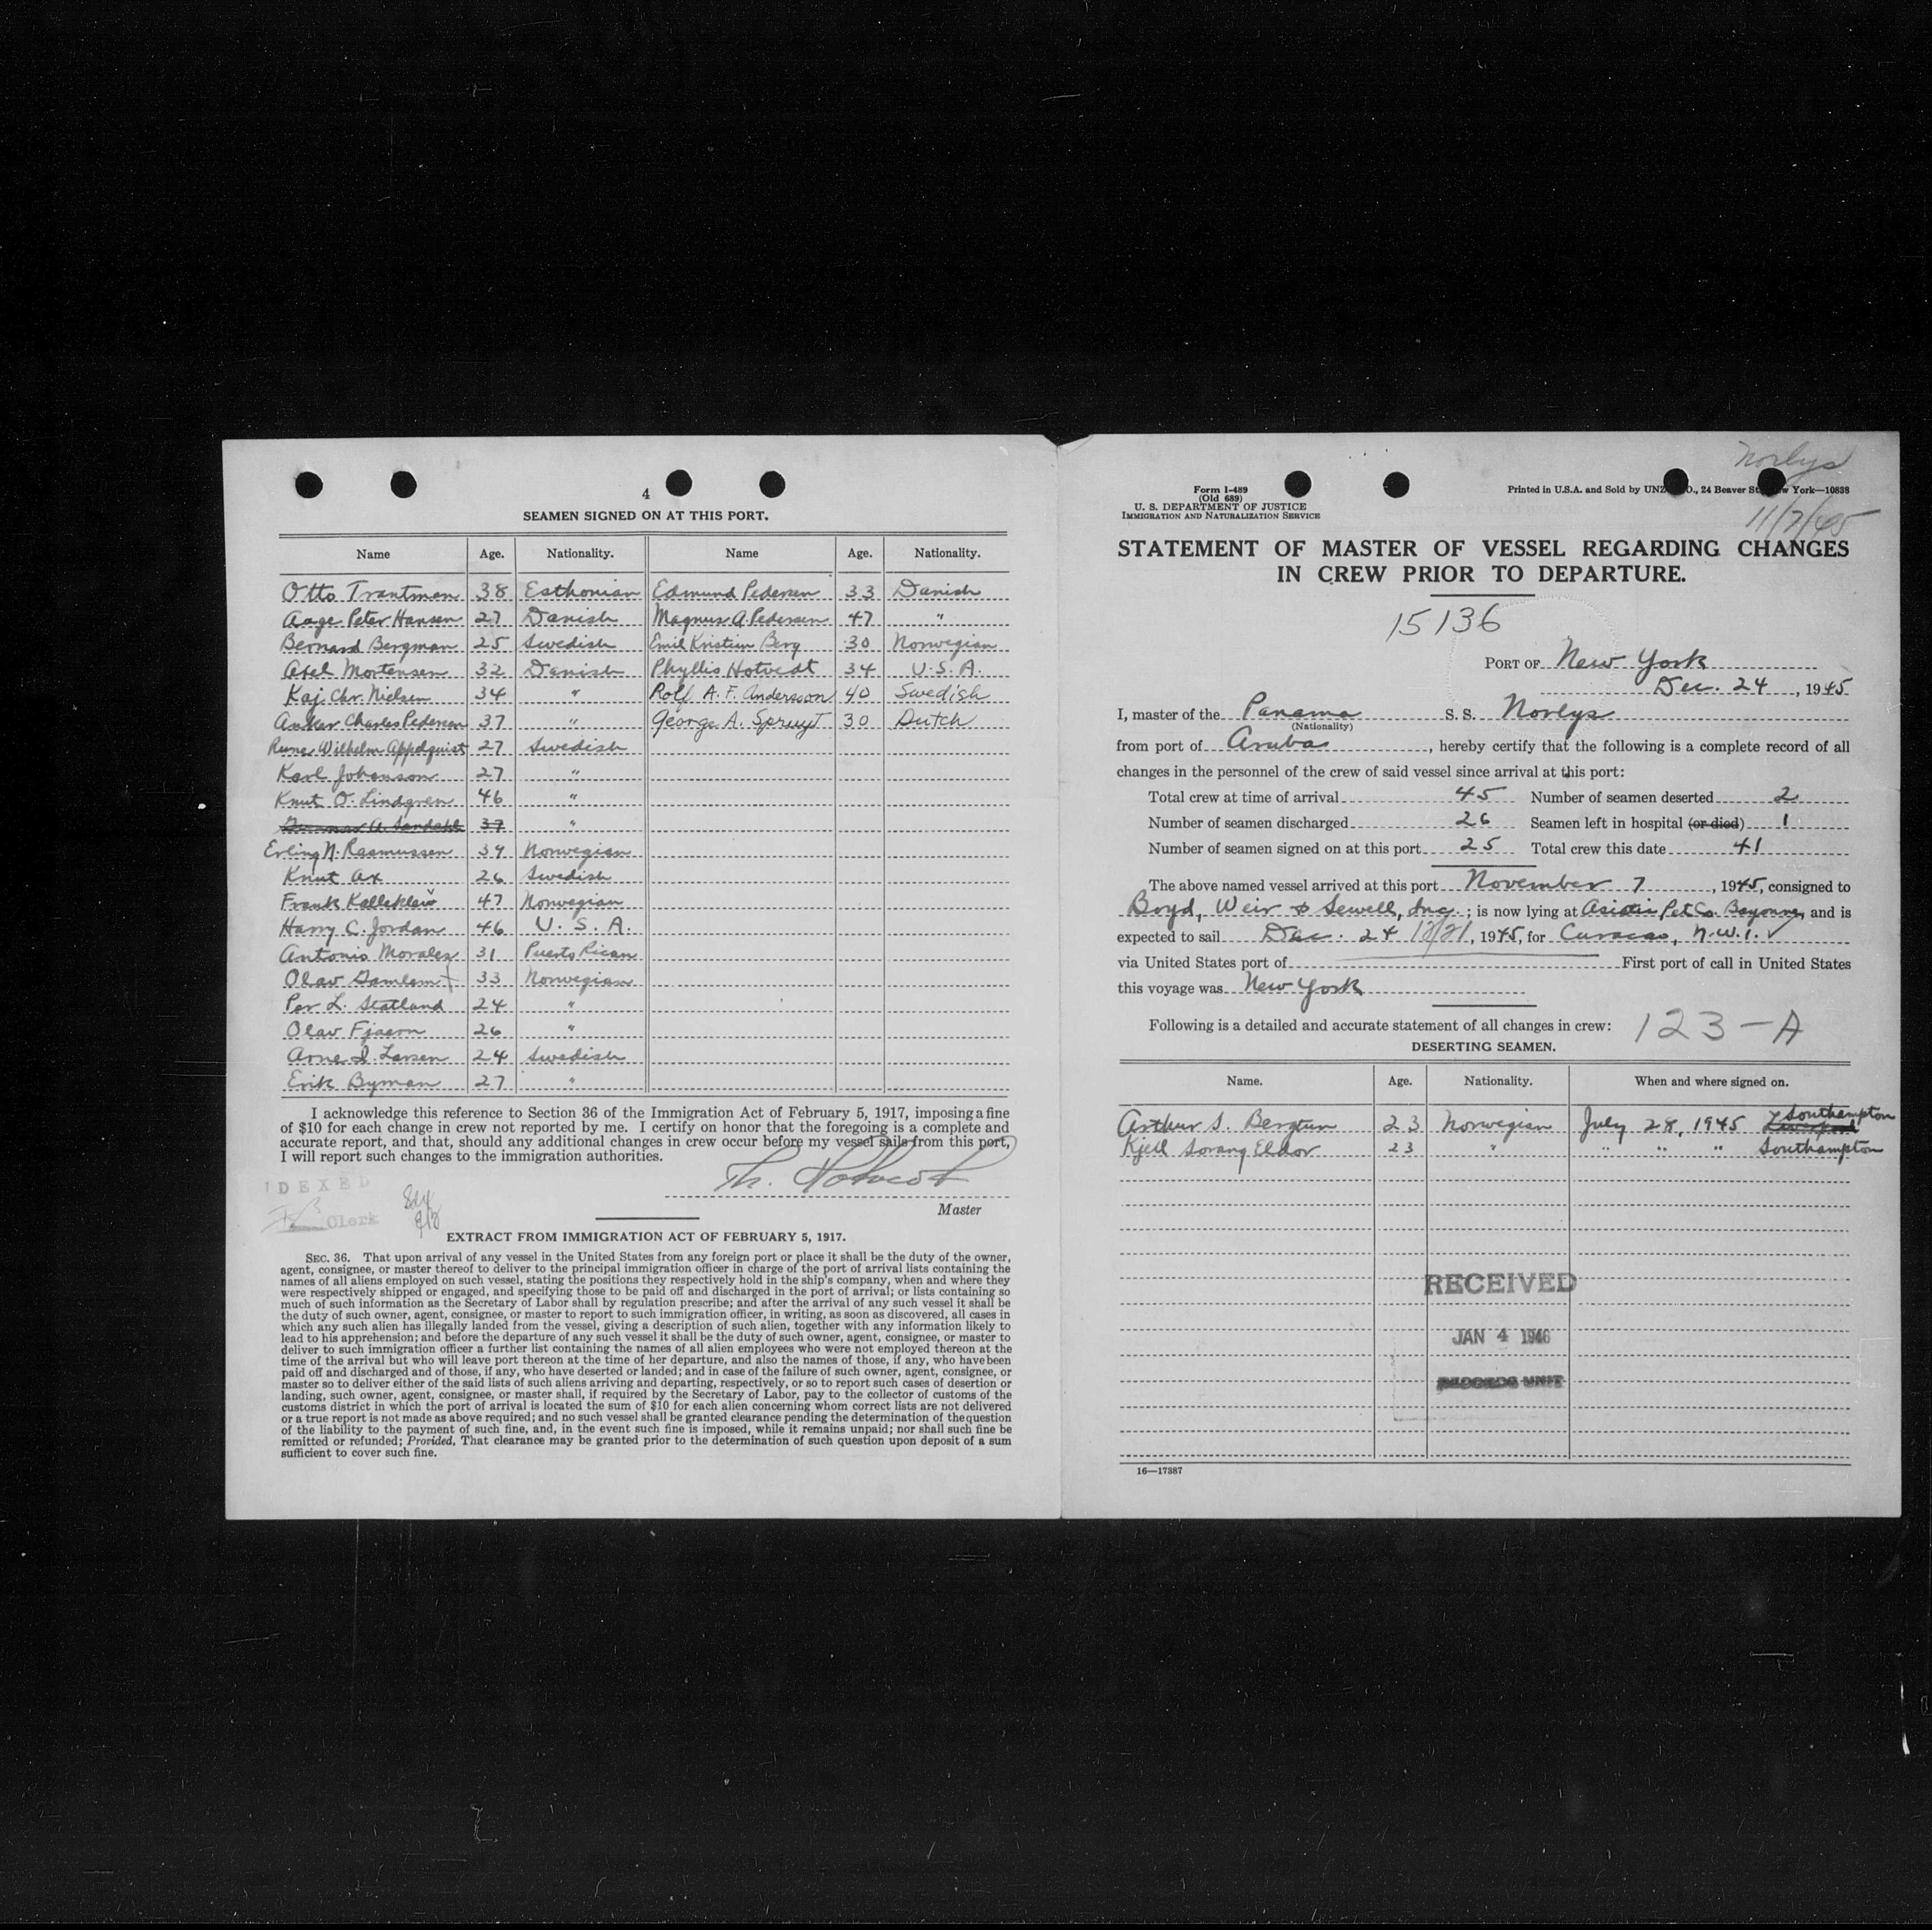 4
SEAMEN SIGNED ON AT THIS PORT.
Name Age. Nationality. Name Age. Nationality.
Otto Trantman 38 Esthonian Edmund Pedersen 33 Danish
Aage Peter Hansen 27 Danish Magnus A. Pedersen 47 "
Bernard Bergman 25 Swedish Emil Kristian Berg 30 Norwegian
Axel Mortensen 32 Danish Phyllis Hotvedt 34 U.S.A.
Kaj Chr. Nielsen 34 " Rolf A. F. Andersson 40 Swedish
Anker Charles Pedersen 37 " George A. Spruyt 30 Dutch
Rune Wilhelm Appelquist 27 Swedish
Karl Johanson 27 "
Knut O. Lindgren 46 "
Gunnar A. Sandahl 37 "
Erling N. Rasmussen 39 Norwegian
Knut Ax 26 Swedish
Frank 47 Norwegian
Harry C. Jordan 46 U. S. A.
Antonio Morales 31 Puerto Rican
Olav Gamlem 33 Norwegian
Per L. Statland 24 "
Olav Fjaern 26 "
Arne I. Larsen 24 Swedish
Erik Byman 27 "
I acknowledge this reference to Section 36 of the Immigration Act of February 5, 1917, imposing a fine
of $10 for each change in crew not reported by me. I certify on honor that the foregoing is a complete and
accurate report, and that, should any additional changes in crew occur before my vessel sails from this port,
I will report such changes to the immigration authorities.
Th. Hotvedt
Master
INDEXED
Clerk
EXTRACT FROM IMMIGRATION ACT OF FEBRUARY 5, 1917.
SEC. 36. That upon arrival of any vessel in the United States from any foreign port or place it shall be the duty of the owner,
agent, consignee, or master thereof to deliver to the principal immigration officer in charge of the port of arrival lists containing the
names of all aliens employed on such vessel, stating the positions they respectively hold in the ship's company, when and where they
were respectively shipped or engaged, and specifying those to be paid off and discharged in the port of arrival; or lists containing so
much of such information as the Secretary of Labor shall by regulation prescribe; and after the arrival of any such vessel it shall be
the duty of such owner, agent, consignee, or master to report to such immigration officer, in writing, as soon as discovered, all cases in
which any such alien has illegally landed from the vessel, giving a description of such alien, together with any information likely to
lead to his apprehension; and before the departure of any such vessel it shall be the duty of such owner, agent, consignee, or master to
deliver to such immigration officer a further list containing the names of all alien employees who were not employed thereon at the
time of the arrival but who will leave port thereon at the time of her departure, and also the names of those, if any, who have been
paid off and discharged and of those, if any, who have deserted or landed; and in case of the failure of such owner, agent, consignee, or
master so to deliver either of the said lists of such aliens arriving and departing, respectively, or so to report such cases of desertion or
landing, such owner, agent, consignee, or master shall, if required by the Secretary of Labor, pay to the collector of customs of the
customs district in which the port of arrival is located the sum of $10 for each alien concerning whom correct lists are not delivered
or a true report is not made as above required; and no such vessel shall be granted clearance pending the determination of the question
of the liability to the payment of such fine, and, in the event such fine is imposed, while it remains unpaid; nor shall such fine be
remitted or refunded; Provided, That clearance may be granted prior to the determination of such question upon deposit of a sum
sufficient to cover such fine.
Norlys
11/7/45
Form I-489
(Old 689)
U. S. DEPARTMENT OF JUSTICE
IMMIGRATION AND NATURALIZATION SERVICE
Printed in U.S.A. and Sold by UNZ CO., 24 Beaver St. New York—10838
STATEMENT OF MASTER OF VESSEL REGARDING CHANGES
IN CREW PRIOR TO DEPARTURE.
15136
PORT OF New York
Dec. 24, 1945
I, master of the Panama S. S. Norlys
(Nationality)
from port of Aruba, hereby certify that the following is a complete record of all
changes in the personnel of the crew of said vessel since arrival at this port:
Total crew at time of arrival 45 Number of seamen deserted 2
Number of seamen discharged 26 Seamen left in hospital (or died) 1
Number of seamen signed on at this port 25 Total crew this date 41
The above named vessel arrived at this port November 7, 1945, consigned to
Boyd, Weir & Sewell, Inc.; is now lying at Asiatic Pet. Co. Bayonne, and is
expected to sail Dec. 24 12/21, 1945, for Curacao, N.W.I. ✓
via United States port of First port of call in United States
this voyage was New York
Following is a detailed and accurate statement of all changes in crew: 123-A
DESERTING SEAMEN.
Name. Age. Nationality. When and where signed on.
Arthur S. Bergtun 23 Norwegian July 28, 1945 Liverpool Southampton
Kjell Sorang Eldor 23 " " " " Southampton
RECEIVED
JAN 4 1946
RECORDS UNIT
16—17387